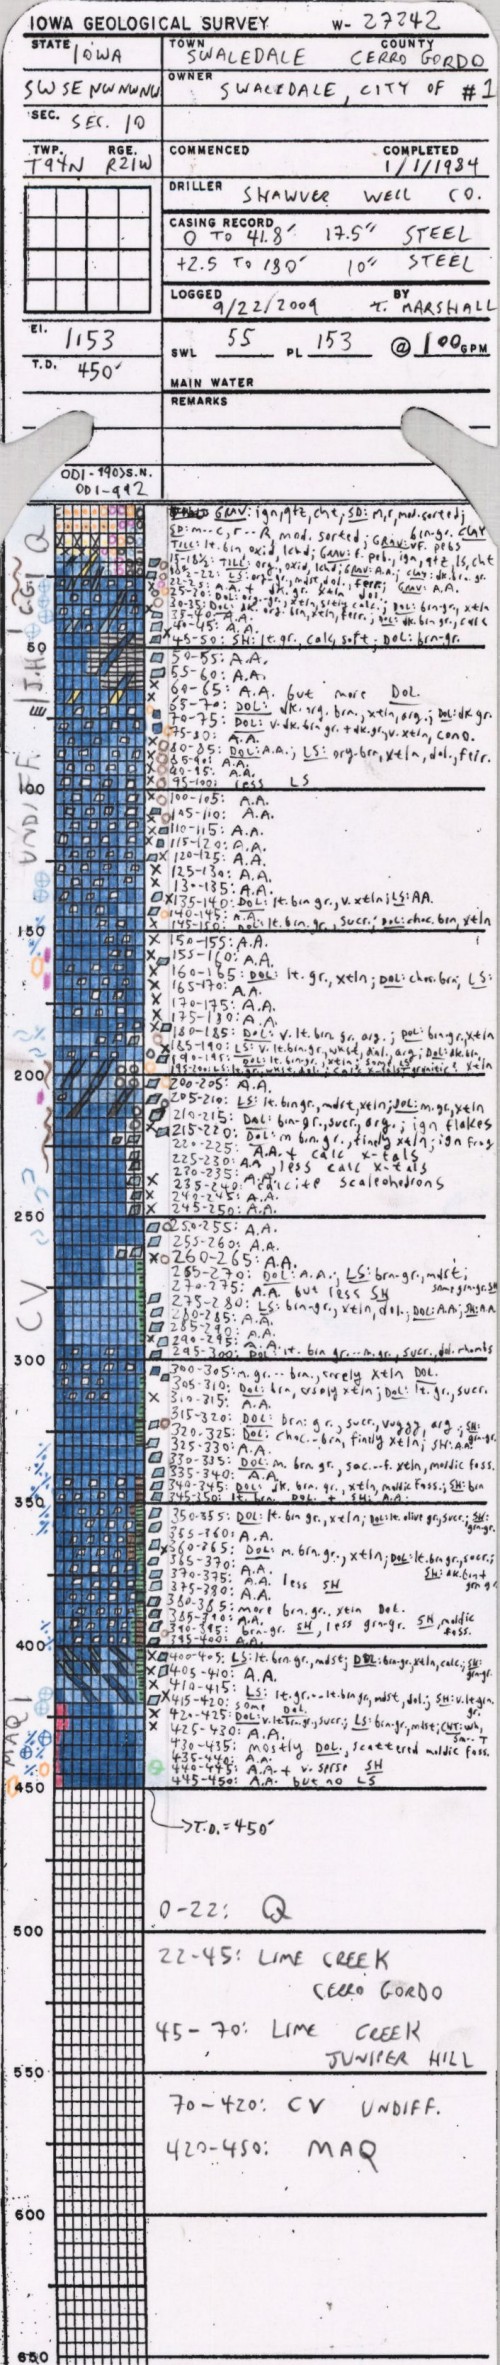 IOWA GEOLOGICAL SURVEY W- 27242
STATE IOWA TOWN SWALEDALE COUNTY CERRO GORDO
SW SE NW NW NW OWNER SWALEDALE, CITY OF #1
SEC. SEC. 10
TWP. T94N RGE. R21W COMMENCED COMPLETED 1/1/1984
DRILLER SHAWVER WELL CO.
CASING RECORD
0 TO 41.8' 17.5" STEEL
+2.5 TO 180' 10" STEEL
LOGGED 9/22/2009 BY T. MARSHALL
El. 1153 SWL 55 PL 153 @ 100 GPM
T.D. 450'
MAIN WATER
REMARKS
S.N.
GRAV: ign, qtz, cht, SD: m, r, mod. sorted;
mod. sorted; GRAV: vf. pebs
Q
C.G.
J.H.
50
45-50: SH: lt. gr., calc, soft. DOL: brn-gr.
50-55: A.A.
55-60: A.A.
60-65: A.A. but more DOL.
65-70: DOL: dk. org. brn., xtln, arg.; DOL: dk gr.
75-80: A.A.
80-85: DOL: A.A.; LS: org-brn, xtln, dol., ferr.
85-90: A.A.
90-95: A.A.
95-100: less LS
100
UNDIFF.
100-105: A.A.
105-110: A.A.
110-115: A.A.
115-120: A.A.
120-125: A.A.
125-130: A.A.
130-135: A.A.
135-140: DOL: lt. brn gr., v. xtln; LS: AA.
140-145: A.A.
145-150: lt. brn. gr., sucr.; DOL: choc. brn, xtln
150
150-155: A.A.
155-160: A.A.
160-165: DOL: lt. gr., xtln; DOL: choc. brn; LS:
165-170: A.A.
170-175: A.A.
175-180: A.A.
180-185: DOL: v. lt. brn gr., arg.; DOL: brn-gr., xtln
185-190: LS: v. lt. brn. gr., wkst, dol., arg.; DOL: dk. brn.
200
200-205: A.A.
205-210: LS: lt. brn gr., mdst, xtln; DOL: m. gr., xtln
210-215: DOL: brn-gr., sucr, arg.; ign flakes
215-220: DOL: m brn gr., finely xtln; ign frag
220-225: A.A. + calc x-tals
225-230: A.A., less calc x-tals
230-235: A.A.
235-240: calcite scalenohedrons
240-245: A.A.
245-250: A.A.
250
CV
250-255: A.A.
255-260: A.A.
260-265: A.A.
265-270: DOL: A.A.; LS: brn-gr., mdst; some grn-gr. SH
270-275: A.A. but less SH
275-280: LS: brn-gr., xtln, dol.; DOL: A.A.; SH: A.A.
280-285: A.A.
285-290: A.A.
290-295: A.A.
295-300: DOL: lt. brn gr...m. gr., sucr., dol. rhombs
300
300-305: m. gr... brn., crsely xtln DOL.
305-310: DOL: brn, crsely xtln; DOL: lt. gr., sucr.
310-315: A.A.
315-320: DOL: brn. gr., sucr., vuggy, arg.; SH: grn-gr.
320-325: DOL: choc.-brn, finely xtln; SH: A.A.
325-330: A.A.
330-335: DOL: m. brn gr., suc.-f. xtln, moldic foss.
335-340: A.A.
340-345: DOL: dk. brn. gr., xtln, moldic foss.; SH: brn
345-350: lt. brn. DOL. + SH: A.A.
350
350-355: DOL: lt. bn gr., xtln; DOL: lt. olive gr, sucr.; SH: grn-gr.
355-360: A.A.
360-365: DOL: m. brn. gr., xtln; DOL: lt. brn-gr., sucr.;
365-370: A.A. SH: dk. brn + grn gr
370-375: A.A.
375-380: A.A. less SH
380-385: more brn. gr. xtln DOL.
385-390: A.A.
390-395: brn-gr. SH, less grn-gr. SH, moldic foss.
395-400: A.A.
400
400-405: LS: lt. brn. gr., mdst; DOL: brn-gr, xtln, calc; SH: grn-gr
405-410: A.A.
410-415: A.A.
415-420: LS: lt. gr...lt. brn gr, mdst, dol.; SH: v. lt grn. gr.
some DOL.
420-425: DOL: v. lt. brn-gr., sucr.; LS: brn-gr., mdst; CHT: wh, sm.. T
425-430: A.A.
430-435: mostly DOL, scattered moldic foss.
435-440: A.A.
440-445: A.A. + v. sparse SH
445-450: A.A. but no LS
MAQ
450
T.D. = 450'
0-22: Q
500
22-45: LIME CREEK
CERRO GORDO
45-70: LIME CREEK
JUNIPER HILL
550
70-420: CV UNDIFF.
420-450: MAQ
600
650